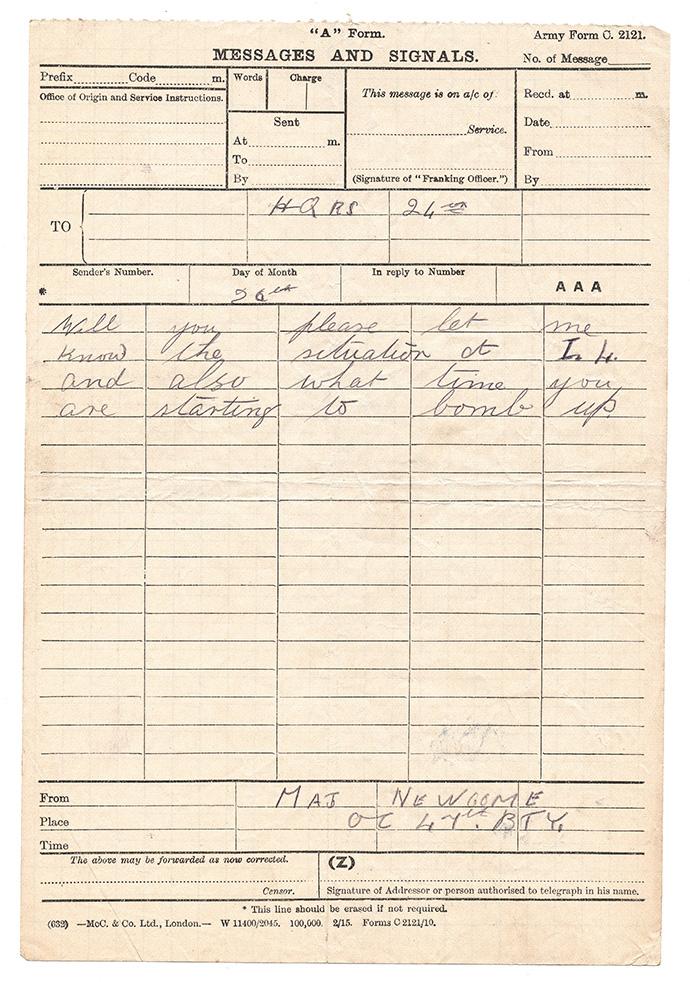 "A" Form.
Army Form C. 2121.
MESSAGES AND SIGNALS.
No. of Message
Prefix Code m.
Words Charge
This message is on a/c of:
Recd. at m.
Office of Origin and Service Instructions.
Sent
At m.
Service.
Date
To
From
By
(Signature of "Franking Officer.")
By
TO
HQRS 24
Sender's Number.
Day of Month
In reply to Number
AAA
*
26th
Will you please let me
know the situation at I. 4.
and also what time you
are starting to bomb up.
From
MAJ NEWCOME
Place
OC 47th. BTY.
Time
The above may be forwarded as now corrected.
(Z)
Censor.
Signature of Addressor or person authorised to telegraph in his name.
* This line should be erased if not required.
(632) —McC. & Co. Ltd., London.— W 11400/2045. 100,000. 2/15. Forms C 2121/10.